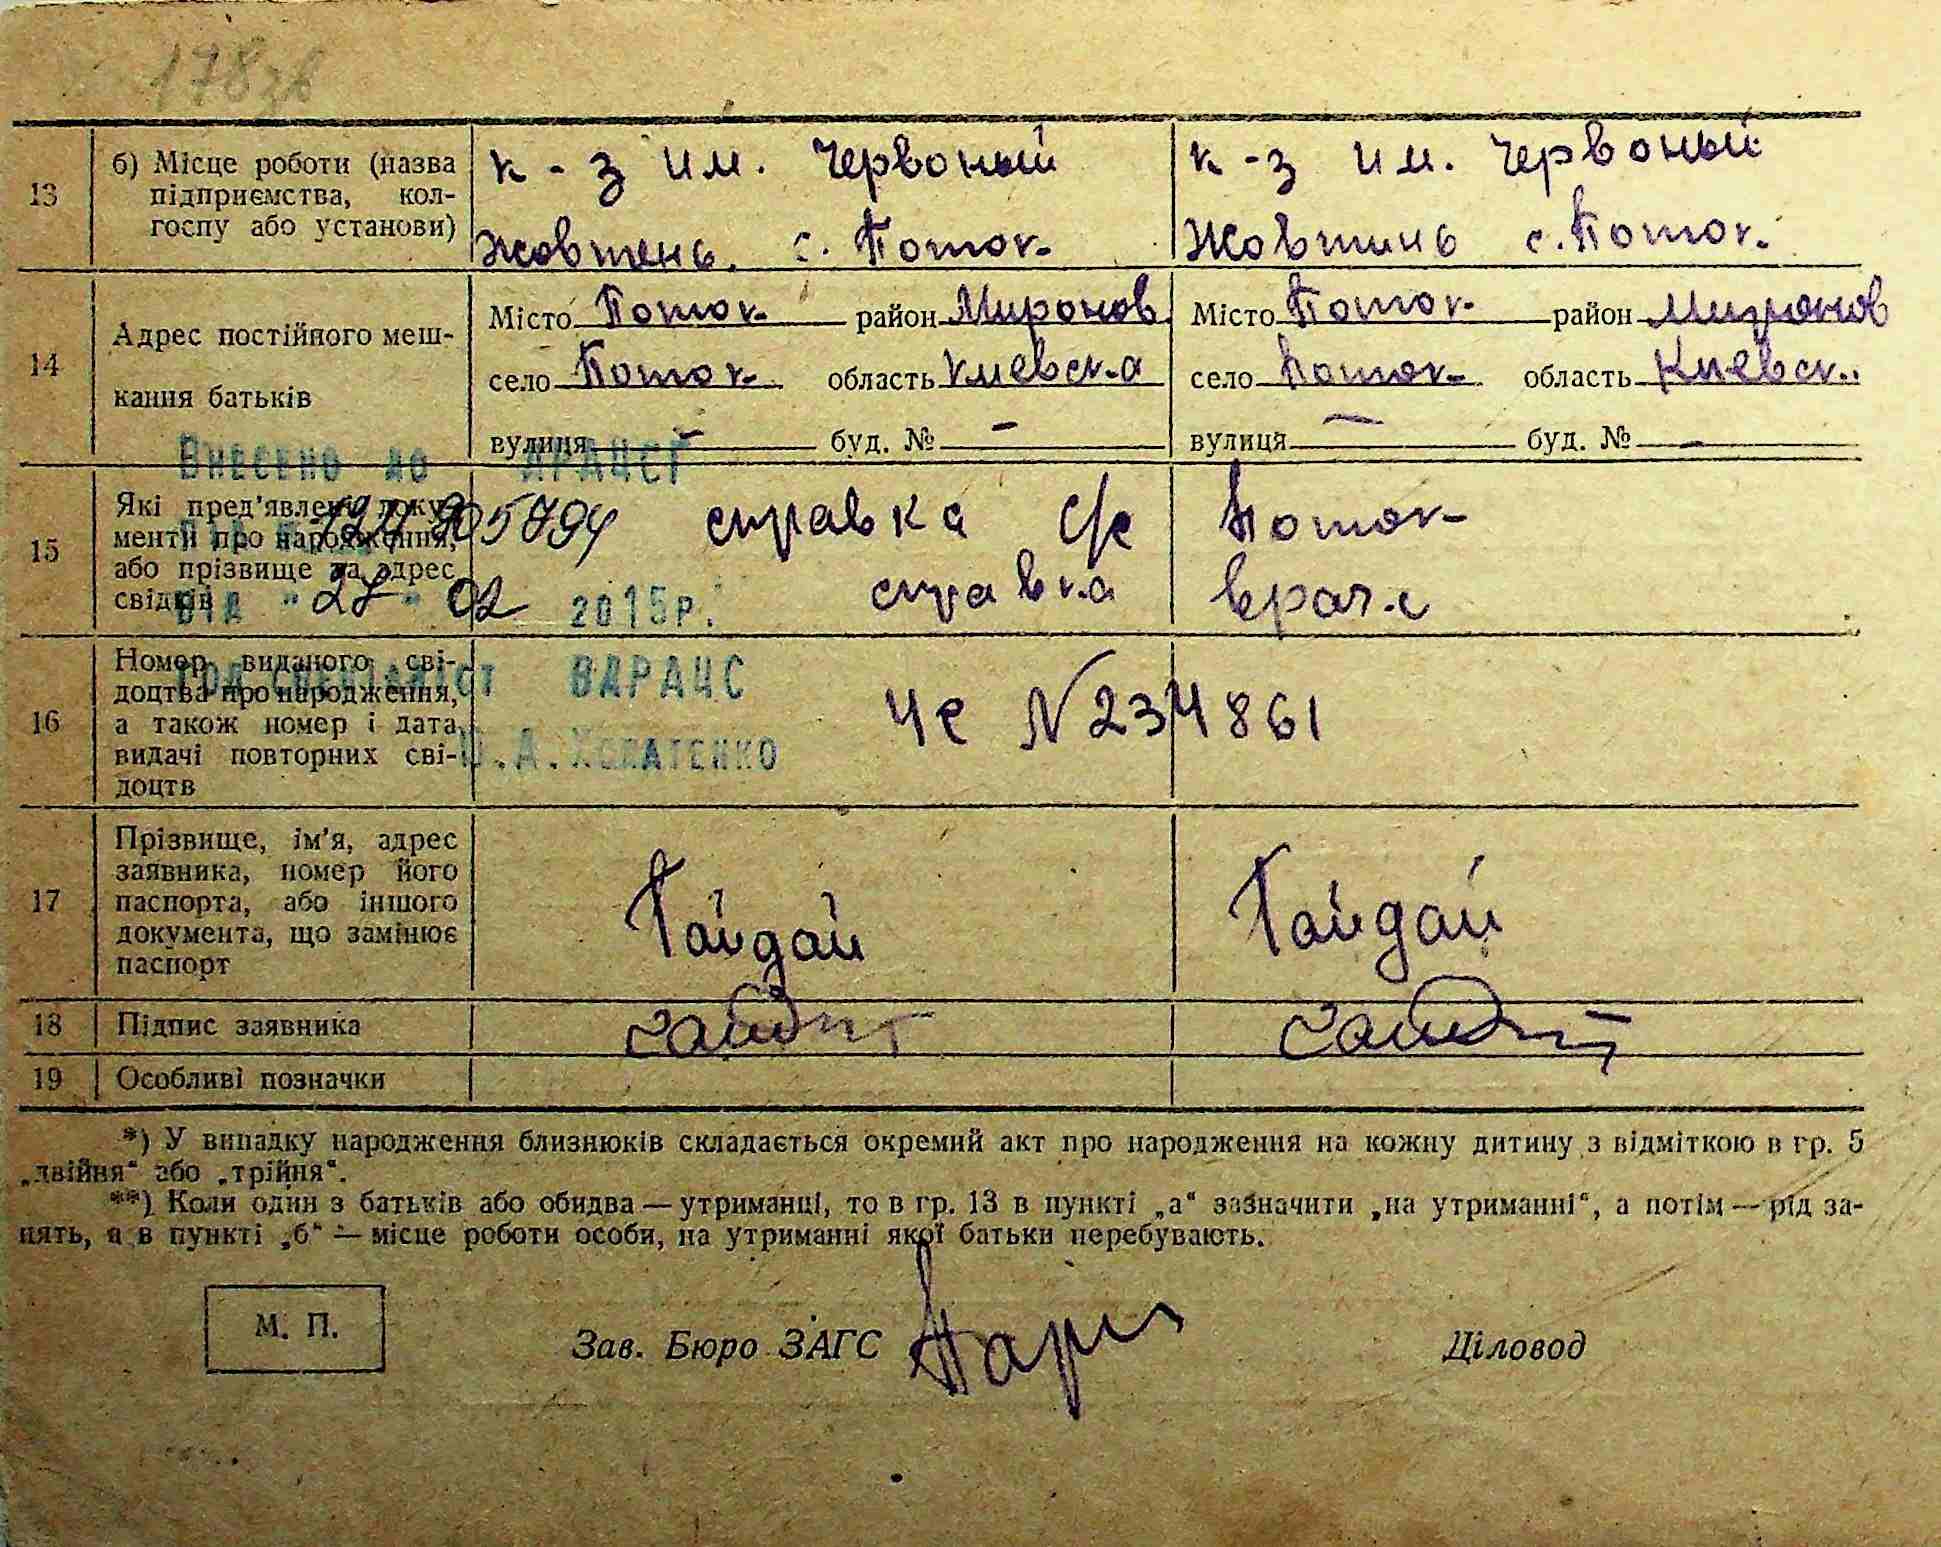 178зв
13
б) Місце роботи (назва
підприємства, кол-
госпу або установи)
к-з им. Червоный
Жовтень. с. Поток
к-з им. Червоный
Жовтинь с. Поток.
14
Адрес постійного меш-
кання батьків
Місто Поток район Миронов
село Поток область Киевска
вулиця – буд. № –
Місто Поток район Миронов
село Поток область Киевск..
вулиця – буд. № –
Внесено до ДРАЦСГ
15
Які пред'явлені доку-
менти про народження,
або прізвище та адрес
свідків
905794
від "27" 02 2015р.
справка с/с Поток
справка врача
16
Номер виданого сві-
доцтва про народження,
а також номер і дата
видачі повторних сві-
доцтв
спеціаліст ВДРАЦС
ЧЕ N 234861
17
Прізвище, ім'я, адрес
заявника, номер його
паспорта, або іншого
документа, що замінює
паспорт
Гайдай
Гайдай
18
Підпис заявника
19
Особливі позначки
*) У випадку народження близнюків складається окремий акт про народження на кожну дитину з відміткою в гр. 5
„двійня“ або „трійня“.
**) Коли один з батьків або обидва — утриманці, то в гр. 13 в пункті „а“ зазначити „на утриманні“, а потім — рід за-
нять, а в пункті „б“ — місце роботи особи, на утриманні якої батьки перебувають.
М. П.
Зав. Бюро ЗАГС
Діловод